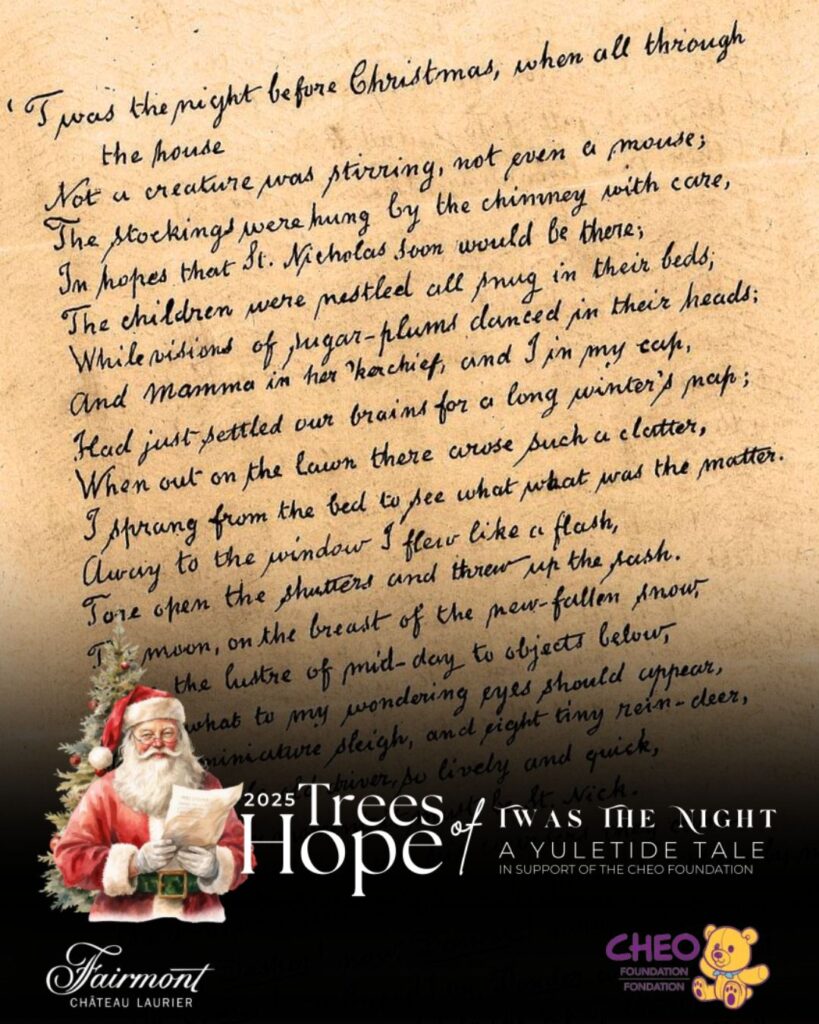 'Twas the night before Christmas, when all through
the house
Not a creature was stirring, not even a mouse;
The stockings were hung by the chimney with care,
In hopes that St. Nicholas soon would be there;
The children were nestled all snug in their beds;
While visions of sugar-plums danced in their heads;
And Mamma in her 'kerchief, and I in my cap,
Had just settled our brains for a long winter's nap;
When out on the lawn there arose such a clatter,
I sprang from the bed to see what what was the matter.
Away to the window I flew like a flash,
Tore open the shutters and threw up the sash.
moon, on the breast of the new-fallen snow,
the lustre of mid-day to objects below,
what to my wondering eyes should appear,
miniature sleigh, and eight tiny rein-deer,
driver, so lively and quick,
St. Nick.
2025 Trees of Hope
TWAS THE NIGHT
A YULETIDE TALE
IN SUPPORT OF THE CHEO FOUNDATION
Fairmont
CHÂTEAU LAURIER
CHEO
FOUNDATION
FONDATION